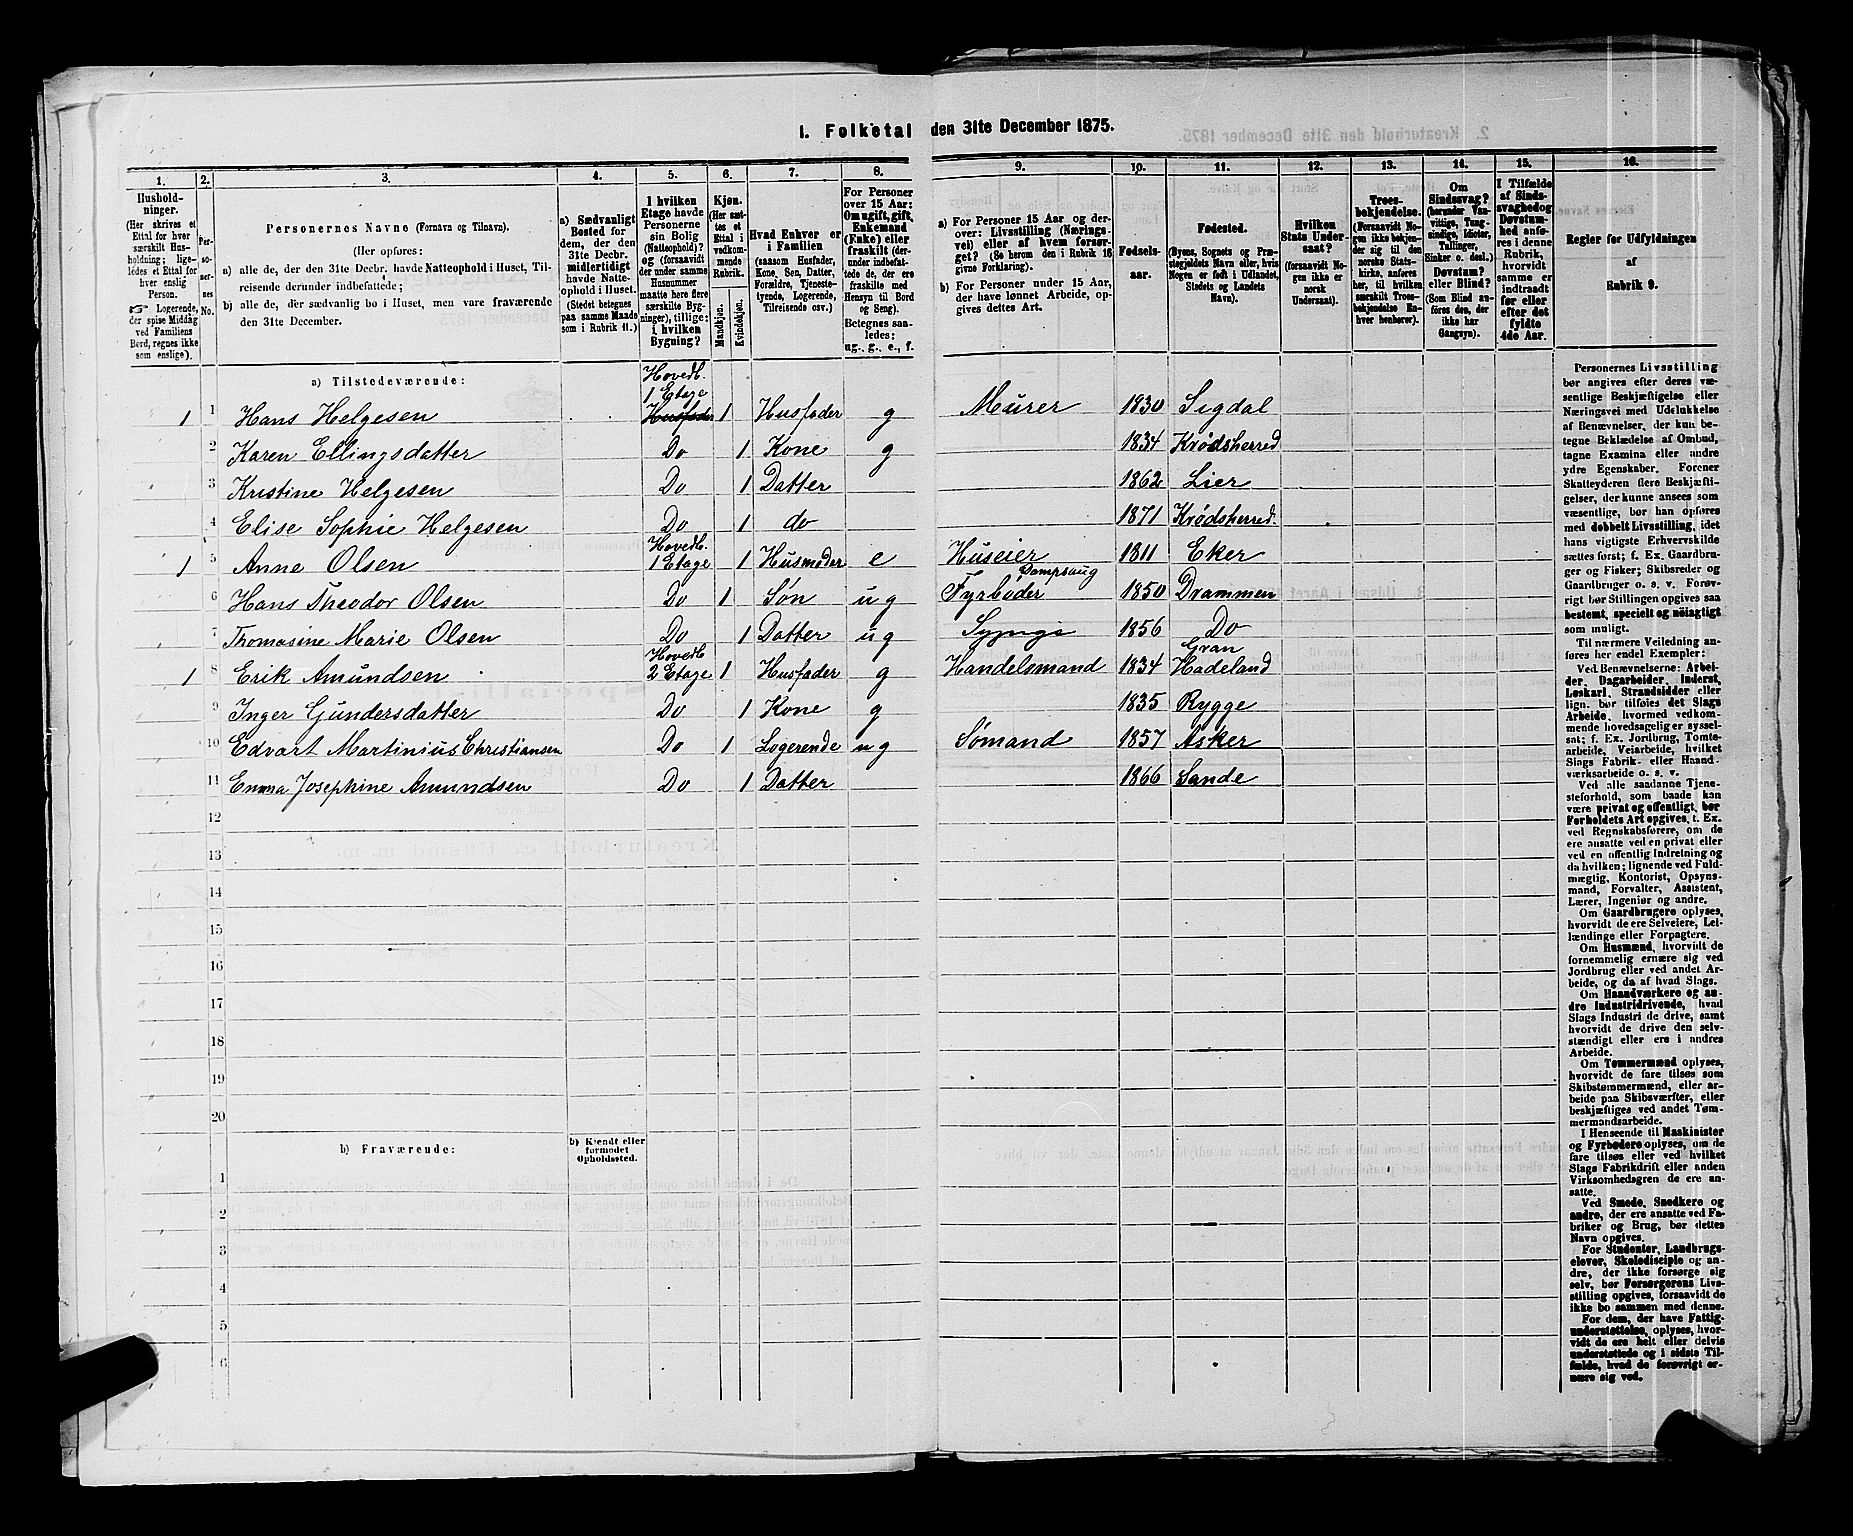 1. Folketal den 31te December 1875.
1. 2. 3. 4. 5. 6. 7. 8. 9. 10. 11. 12. 13. 14. 15. 16.
Hushold-
ninger.
(Her skrives et
Ettal for hver
særskilt Hus-
holdning; lige-
ledes et Ettal for
hver enslig
Person.
☞ Logerende,
der spise Middag
ved Familiens
Bord, regnes ikke
som enslige).
Per-
so-
ner-
nes
No.
Personernes Navne (Fornavn og Tilnavn).
(Her opføres:
a) alle de, der den 31te Decbr. havde Natteophold i Huset, Til-
reisende derunder indbefattede;
b) alle de, der sædvanlig bo i Huset, men vare fraværende
den 31te December.
a) Sædvanligt
Bosted for
dem, der den
31te Decbr.
midlertidigt
havde Natte-
ophold i Huset.
(Stedet betegnes
paa samme Maade
som i Rubrik 11.)
I hvilken
Etage havde
Personerne
sin Bolig
(Natteophold)?
og (forsaavidt
der under samme
Husnummer
maatte høre flere
særskilte Byg-
ninger), tillige:
i hvilken
Bygning?
Kjøn.
(Her sæt-
tes et
Ettal i
vedkom-
mende
Rubrik.
Mandkjøn.
Kvindekjøn.
Hvad Enhver er
i Familien
(saasom Husfader,
Kone, Søn, Datter,
Forældre, Tjeneste-
tyende, Logerende,
Tilreisende osv.)
For Personer
over 15 Aar:
Om ugift, gift,
Enkemand
(Enke) eller
fraskilt (der-
under indbefat-
tede de, der ere
fraskilte med
Hensyn til Bord
og Seng).
Betegnes saa-
ledes;
ug., g., e., f.
a) For Personer 15 Aar og der-
over: Livsstilling (Nærings-
vei) eller af hvem forsør-
get? (Se herom den i Rubrik 16
givne Forklaring).
b) For Personer under 15 Aar,
der have lønnet Arbeide, op-
gives dettes Art.
Fødsels-
aar.
Fødested.
(Byens, Sognets og Præ-
stegjeldets Navn eller, hvis
Nogen er født i Udlandet,
Stedets og Landets
Navn).
Hvilken
Stats Under-
saat?
(forsaavidt No-
gen ikke er
norsk
Undersaat).
Troes-
bekjendelse.
(Forsaavidt No-
gen ikke bekjen-
der sig til den
norske Stats-
kirke, anføres
her, til hvilken
særskilt Troes-
bekjendelse En-
hver henhører).
Om
Sindssvag?
(herunder Van-
vittige, Tung-
sindige, Idioter,
Tullinger,
Sinker o. desl.)
Døvstum?
eller Blind?
(Som Blind an-
føres den, der
ikke har
Gangsyn).
I Tilfælde
af Sinds-
svaghed og
Døvstum-
hed anfø-
res i denne
Rubrik,
hvorvidt
samme er
indtraadt
før eller
efter det
fyldte
4de Aar.
Regler for Udfyldningen
af
Rubrik 9.
a) Tilstedeværende:
1 1 Hans Helgesen Hovedb. 1 Etage Husfader 1 Husfader g Murer 1830 Sigdal
2 Karen Ellingsdatter Do 1 Kone g 1834 Krødsherred
3 Kristine Helgesen Do 1 Datter 1862 Lier
4 Elise Sophie Helgesen Do 1 do 1871 Krødsherred.
1 5 Anne Olsen Hovedb. 1 Etage 1 Husmoder e Huseier 1811 Eker
6 Hans Theodor Olsen Do 1 Søn ug Fyrbøder 1850 Drammen
7 Thomasine Marie Olsen Do 1 Datter ug 1856 Do
1 8 Erik Amundsen Hovedb 2 Etage 1 Husfader g Handelsmand 1834 Gran Hadeland
9 Inger Gundersdatter Do 1 Kone g 1835 Rygge
10 Edvart Martinius Christiansen Do 1 Logerende ug Sømand 1857 Asker
11 Emma Josephine Amundsen Do 1 Datter 1866 Sande
12
13
14
15
16
17
18
19
20
b) Fraværende:
b) Kjendt eller
formodet
Opholdssted.
1
2
3
4
5
6
Personernes Livsstilling
bør angives efter deres væ-
sentlige Beskjæftigelse eller
Næringsvei med Udelukkelse
af Benævnelser, der kun be-
tegne Beklædelse af Ombud,
tagne Examina eller andre
ydre Egenskaber. Forener
Skatteyderen flere Beskjæfti-
gelser, der kunne ansees som
væsentlige, bør han opføres
med dobbelt Livsstilling, idet
hans vigtigste Erhvervskilde
sættes først; f. Ex. Gaardbru-
ger og Fisker; Skibsreder og
Gaardbruger o. s. v. Forøv-
rigt bør Stillingen opgives saa
bestemt, specielt og nöiagtigt
som muligt.
Til nærmere Veiledning an-
føres her endel Exempler:
Ved Benævnelserne: Arbei-
der, Dagarbeider, Inderst,
Løskarl, Strandsidder eller
lign. bør tilføies det Slags
Arbeide, hvormed vedkom-
mende hovedsagelig er syssel-
sat; f. Ex. Jordbrug, Tomte-
arbeide, Veiarbeide, hvilket
Slags Fabrik- eller Haand-
værksarbeide o. s. v.
Ved alle saadanne Tjene-
steforhold, som baade kan
være privat og offentligt, bør
Forholdets Art opgives, t. Ex.
ved Regnskabsførere, om de
ere ansatte ved en privat eller
ved en offentlig Indretning og
da hvilken; lignende ved Fuld-
mægtig, Kontorist, Opsyns-
mand, Forvalter, Assistent,
Lærer, Ingeniør og andre.
Om Gaardbrugere oplyses,
hvorvidt de ere Selveiere, Lei-
lændinge eller Forpagtere.
Om Husmænd, hvorvidt de
fornemmelig ernære sig ved
Jordbrug eller ved andet Ar-
beide, og da af hvad Slags.
Om Haandværkere og an-
dre Industridrivende, hvad
Slags Industri de drive, samt
hvorvidt de drive den selv-
stændigt eller ere i andres
Arbeide.
Om Tømmermænd oplyses,
hvorvidt de fare tilsøs som
Skibstømmermænd, eller ar-
beide paa Skibsværfter, eller
beskjæftiges ved andet Tøm-
mermandsarbeide.
I Henseende til Maskinister
og Fyrbødere oplyses, om de
fare tilsøs eller ved hvilket
Slags Fabrikdrift eller anden
Virksomhedsgren de ere an-
satte.
Ved Smede, Snedkere og
andre, der ere ansatte ved Fa-
briker og Brug, bør dettes
Navn opgives.
For Studenter, Landbrugs-
elever, Skoledisciple og an-
dre, der ikke forsørge sig
selv, bør Forsørgerens Livs-
stilling opgives, forsaavidt de
ikke bo sammen med denne.
For dem, der have Fattig-
understøttelse, oplyses, hvor-
vidt de ere helt eller delvis
understøttede og i sidste Til-
fælde, hvad de forøvrigt er-
nære sig ved.